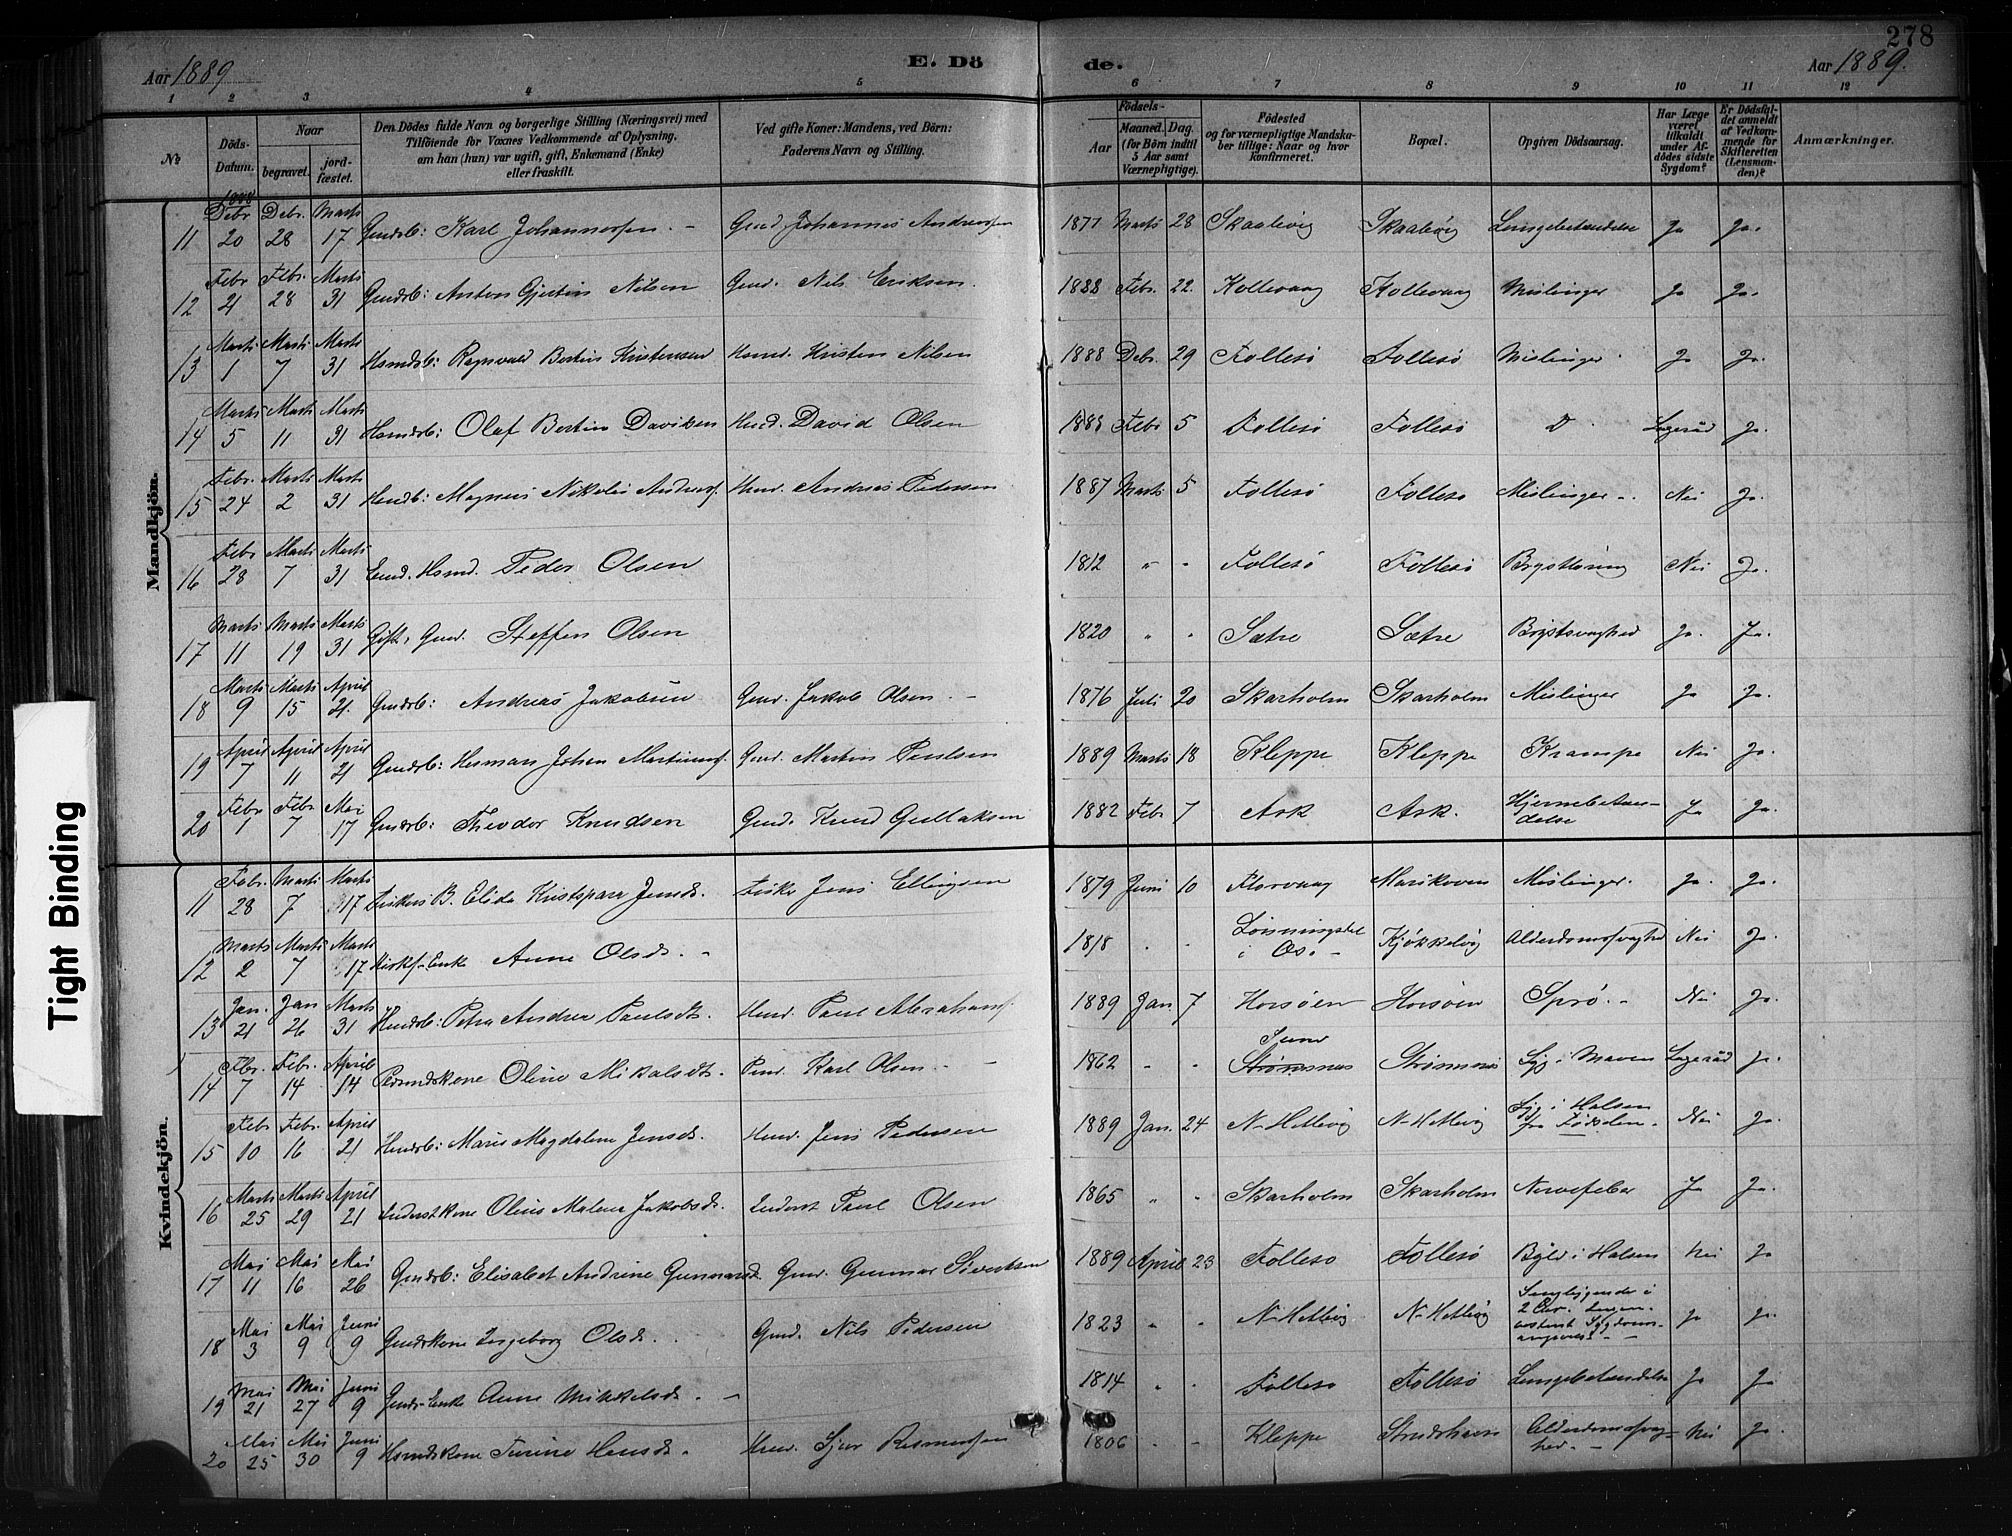 278
Aar 1889
E. Dö
de.
Aar 1889.
1 2 3 4 5 6 7 8 9 10 11 12
No
Döds-Datum.
Naar
begravet.
jord-fæstet.
Den Dödes fulde Navn og borgerlige Stilling (Næringsvei) med
Tilföiende for Voxnes Vedkommende af Oplysning,
om han (hun) var ugift, gift, Enkemand (Enke)
eller fraskilt.
Ved gifte Koner: Mandens, ved Börn:
Faderens Navn og Stilling.
Födsels-
Aar
Maaned. Dag.
(for Börn indtil
5 Aar samt
Værnepligtige).
Födested
og for værnepligtige Mandska-
ber tillige: Naar og hvor
konfirmeret.
Bopæl.
Opgiven Dödsaarsag.
Har Læge
været
tilkaldt
under Af-
dödes sidste
Sygdom?
Er Dödsfal-
det anmeldt
af Vedkom-
mende for
Skifteretten
(Lensman-
den)?
Anmærkninger.
Mandkjön.
11 20 Debr. 28 Marts 17 Gmdsb: Karl Johannessen Gmd. Johannes Andersen 1877 Marts 28 Skaalevig Skaalevig Lungebetændelse Ja Ja.
12 Febr 21 Febr. 28 Marts 31 Gmdsb: Anton Gjertin Nilsen Gmd. Nils Eriksen. 1888 Febr. 22 Kollevaag Kollevaag Mislinger Ja Ja.
13 Marts 1 Marts 7 Marts 31 Hsmdsb: Ragnvald Bertin Kristensen Hsmd. Kristen Nilsen 1888 Debr. 29 Follesö Follesö Mislinger Ja Ja.
14 Marts 5 Marts 11 Marts 31 Hsmdsb: Olaf Bertin Daviksen Hmd. David Olsen Febr 5 Follesö Follesö D Lægeråd Ja.
15 Febr. 24 Marts 2 Marts 31 Hmdb: Magnus Nikolai Andreas. Hmd. Andreas Pedersen 1887 Marts 5 Follesö Follesö Mislinger Nei Ja.
16 Febr 28 Marts 7 Marts 31 Emd. Hsmd. Peder Olsen 1812 " " Follesö Follesö Nei Ja.
17 Marts 11 Marts 19 Marts 31 Gift, Gmd. Steffen Olsen 1820 " " Sætre Sætre Brystsvaghed Ja. Ja.
18 Marts 9 Marts 15 April 21. Gmdsb: Andreas Jakobsen Gmd. Jakob Olsen 1876 Juli 20 Skarholm Skarholm Mislinger Ja Ja.
19 April 7 April 11 April 21 Gmdsb: Herman Johan Martinus. Gmd. Martin Paulsen 1889 Marts 18 Kleppe Kleppe Krampe Nei Ja.
20 Febr 1 Febr 7 Mai 17 Gmdsb: Theodor Knudsen Gmd. Knud Gullaksen 1882 Febr 7 Ask Ask. Hjernebetæn-
delse Ja Ja.
Kvindekjön.
11 Febr. 28 Marts 7 Marts 17 Fiskers B. Elida Jensd. Fisker Jens Ellingsen 1879 Juni 10 Florvaag Marikoven Mislinger. Ja. Ja.
12 Marts 2 Marts 7 Marts 17 Enke Anne Olsd. 1818 " "
i Os. Kjökkelvig Alderdomssvaghed Nei Ja.
13 Jan. 21 Jan 26 Marts 31 Hmdsb: Petra Andrea Paulsdt. Hmd. Paul Abrahams. 1889 Jan. 7 Horsöen Horsöen Nei Ja.
14 Febr. 7 Febr. 14 April 14 Oline Mikalsdt. Karl Olsen 1862 " "
Strömsnes Strömsnes Syg i Maven Lægeråd Ja.
15 Febr 10 Febr. 16 April 21 Hmdsb: Marie Magdalene Jensd. Hmd. Jens Pedersen 1889 Jan. 24 N-Hetlevig N-Hetlevig Syg i Halsen
fra Födselen. Nei Ja.
16 Marts 25 Marts 29 April 21 Inderstkone Oline Malene Jakobsd. Inderst Paul Olsen 1865 " " Skarholm Skarholm Nervefeber Ja Ja.
17 Mai 11 Mai 16 Mai 26 Gmdsb: Elisabet Andrine Gunnarsd. Gmd. Gunnar Siversen 1889 April 23 Follesö Follesö Byld i Halsen Nei Ja
18 Mai 3 Mai 9 Juni 9 Gmdskone Ingeborg Olsd. Gmd. Nils Pedersen 1823 " " N-Hetlevig N-Hetlevig Sengeliggende i
2 Aar. Ja Ja.
19 Mai 21 Mai 27 Juni 9 Gmds-Enke Anne Mikkelsd. 1814 " " Follesö Follesö Lungebetændelse Ja Ja
20 Mai 25 Mai 30 Juni 9 Hsmdskone Hansd. Hmd. Sjur Rasmussen 1806 " " Kleppe Strudshavn Alderdomssvag-
hed. Nei Ja.
Tight Binding